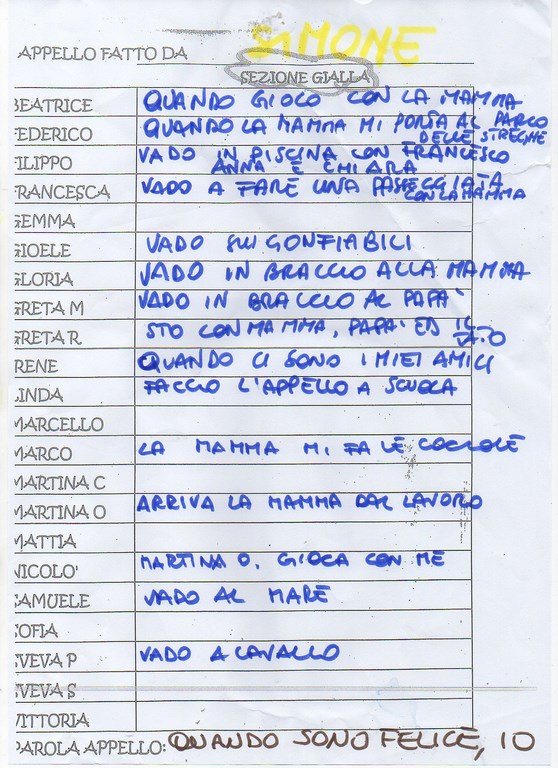 APPELLO FATTO DA SIMONE
SEZIONE GIALLA
BEATRICE QUANDO GIOCO CON LA MAMMA
FEDERICO QUANDO LA MAMMA MI PORTA AL PARCO
DELLE STREGHE
FILIPPO VADO IN PISCINA CON FRANCESCO
ANNA E CHIARA
FRANCESCA VADO A FARE UNA PASSEGGIATA
CON LA MAMMA
GEMMA
GIOELE VADO SUI GONFIABILI
GLORIA VADO IN BRACCIO ALLA MAMMA
GRETA M VADO IN BRACCIO AL PAPA'
GRETA R STO CON MAMMA, PAPA' ED IL
IRENE QUANDO CI SONO I MIEI AMICI
LINDA FACCIO L'APPELLO A SCUOLA
MARCELLO
MARCO LA MAMMA MI FA LE COCCOLE
MARTINA C
MARTINA O ARRIVA LA MAMMA DAL LAVORO
MATTIA
NICOLO' MARTINA O. GIOCA CON ME
SAMUELE VADO AL MARE
SOFIA
SVEVA P VADO A CAVALLO
SVEVA S
VITTORIA
PAROLA APPELLO: QUANDO SONO FELICE, IO